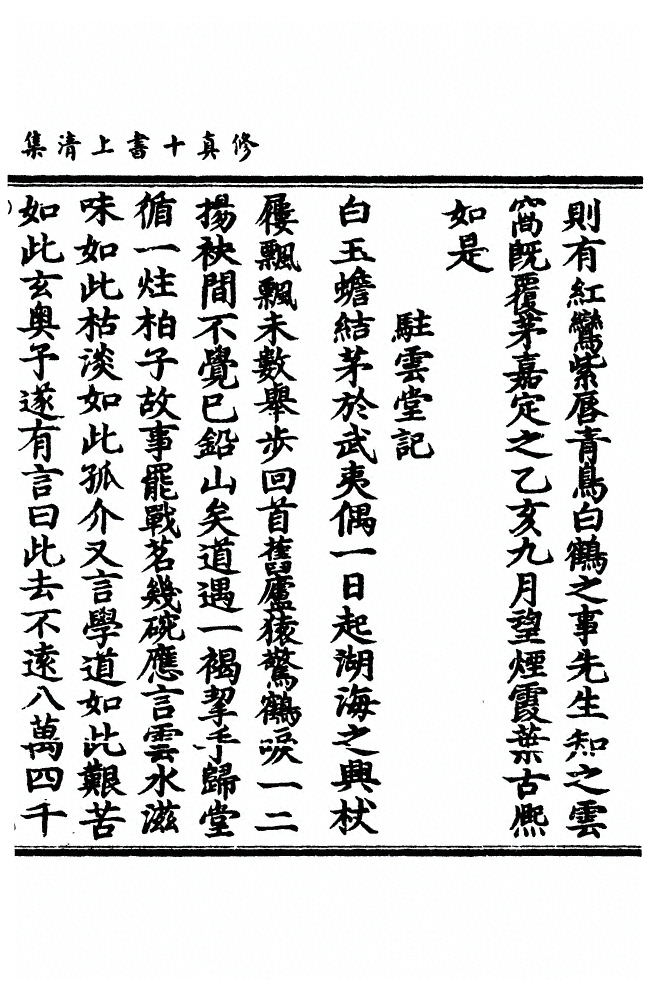 修真十書上清集
則有紅鸞紫唇青鳥白鶴之事先生知之雲
窩既覆茅嘉定之乙亥九月望煙霞葉古熈
如是
駐雲堂記
白玉蟾結茅於武夷偶一日起湖海之興杖
屨飄飄未數舉步回首舊廬猿驚鶴唳一二
揚袂間不覺已鉛山矣道遇一褐挈手歸堂
循一炷柏子故事罷戰茗幾碗應言雲水滋
味如此枯淡如此孤介又言學道如此艱苦
如此玄奥予遂有言曰此去不遠八萬四千